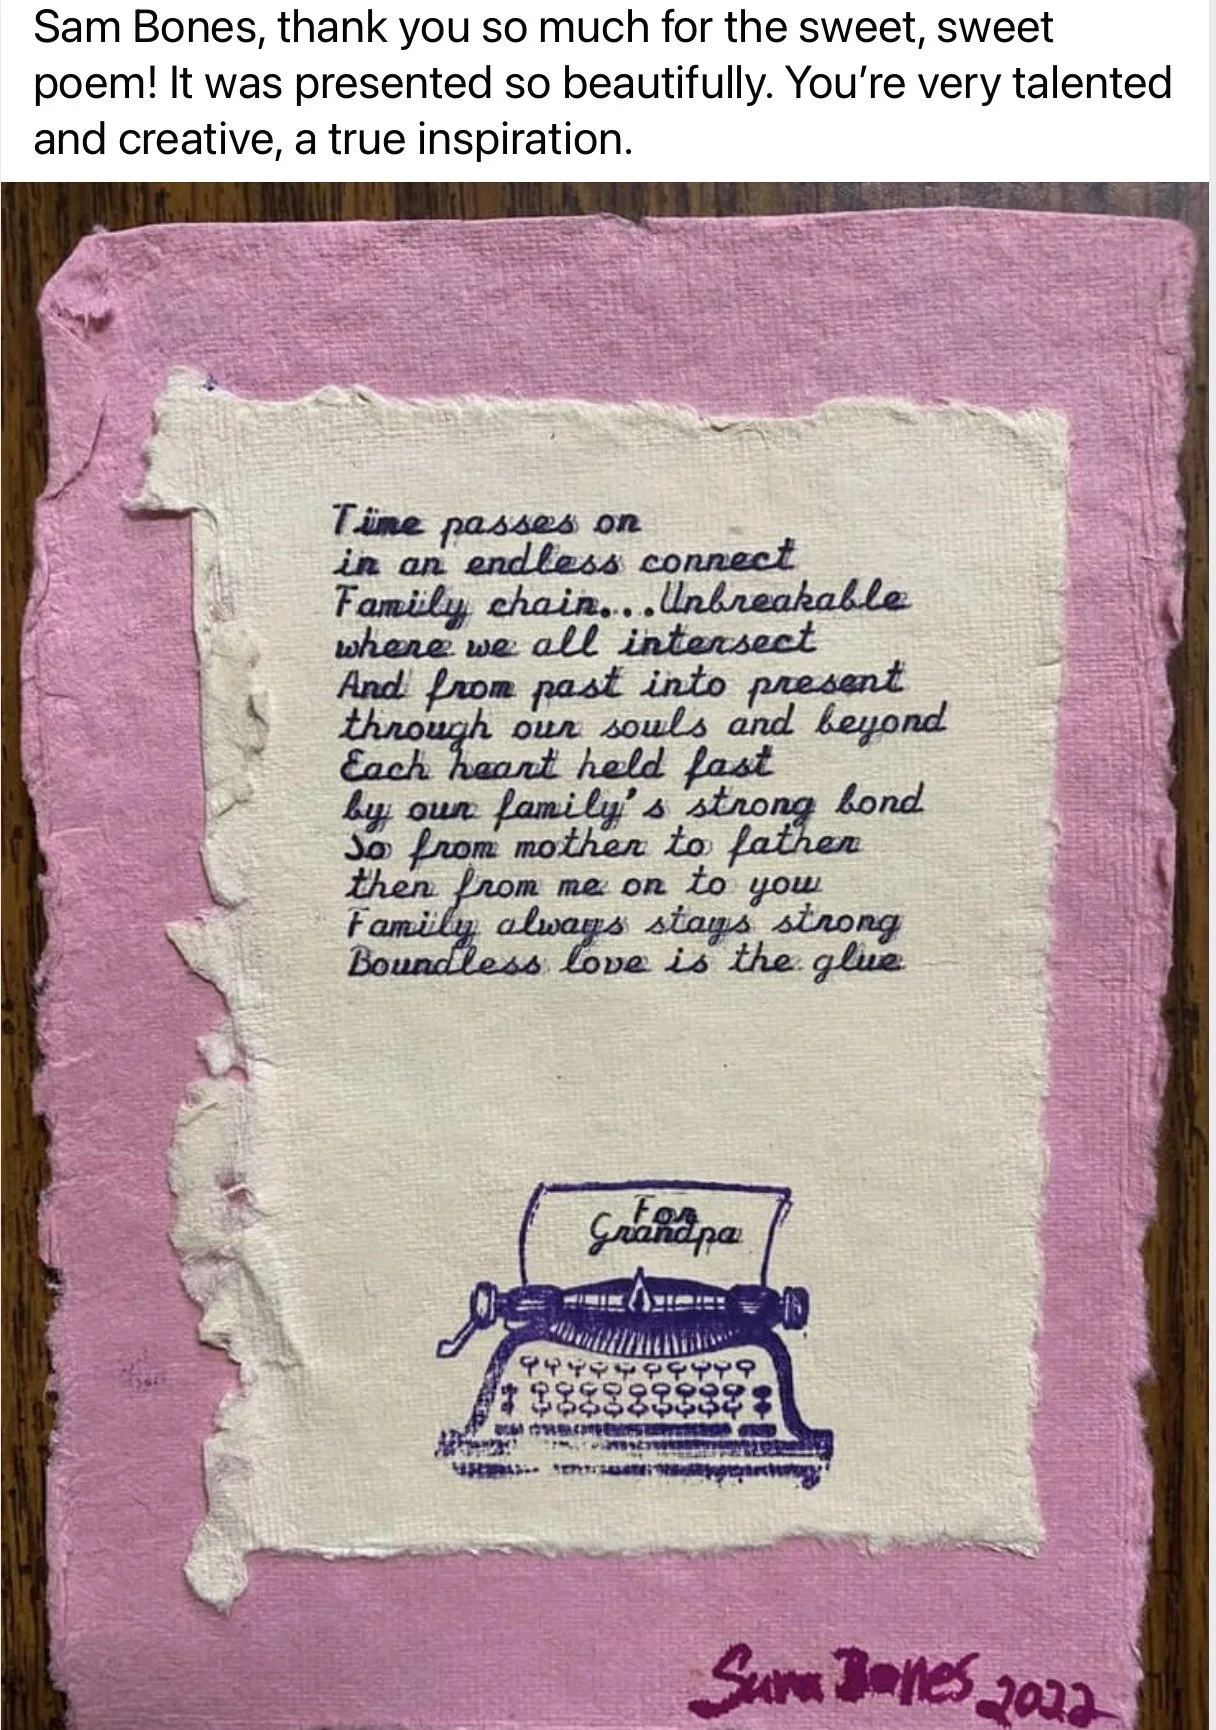 Sam Bones, thank you so much for the sweet, sweet
poem! It was presented so beautifully. You’re very talented
and creative, a true inspiration.
Time passes on
in an endless connect
Family chain...Unbreakable
where we all intersect
And from past into present
through our souls and beyond
Each heart held fast
by our family's strong bond
So from mother to father
then from me on to you
Family always stays strong
Boundless love is the glue
For
Grandpa
Sam Bones 2022